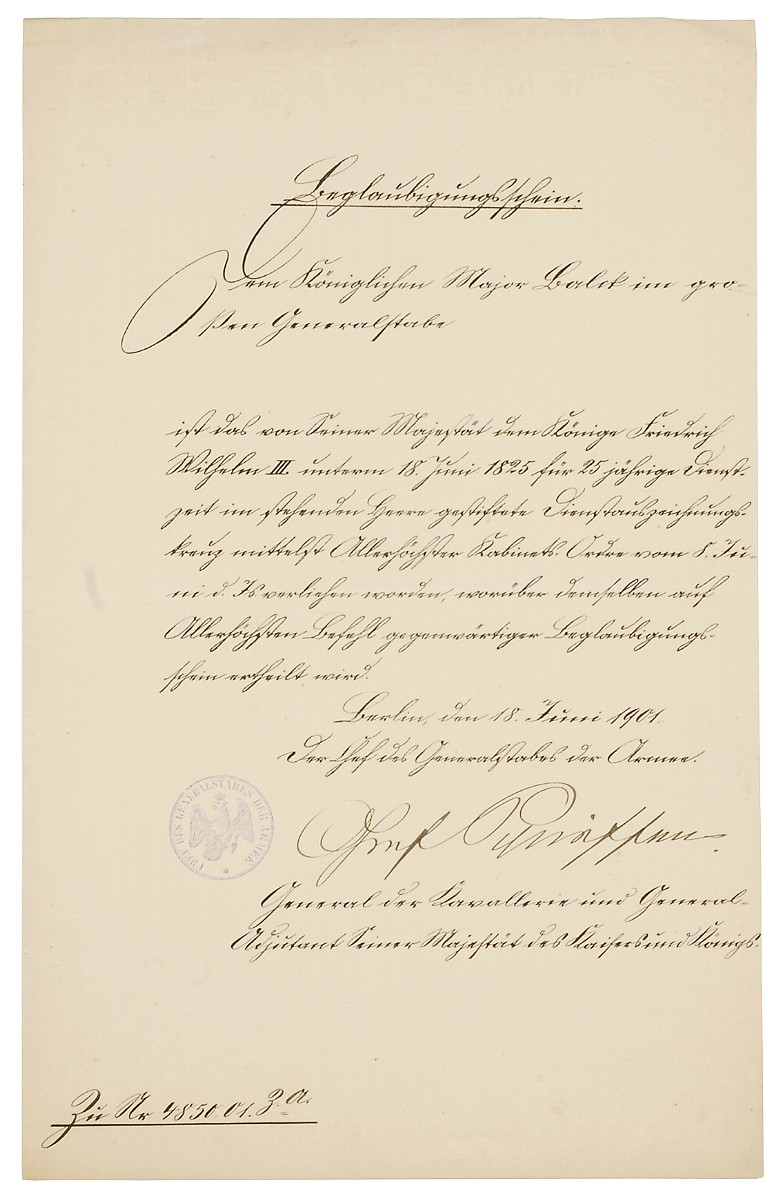 Beglaubigungsschein.
Dem Königlichen Major Balck im gro-
ßen Generalstabe
ist das von Seiner Majestät dem Könige Friedrich
Wilhelm III. unterm 18. Juni 1825 für 25 jährige Dienst-
zeit im stehenden Heere gestiftete Dienstauszeichnungs-
kreuz mittelst Allerhöchster Kabinets-Ordre vom 8. Ju-
ni d. Js verliehen worden, worüber demselben auf
Allerhöchsten Befehl gegenwärtiger Beglaubigungs-
schein ertheilt wird.
Berlin, den 18. Juni 1901.
Der Chef des Generalstabes der Armee.
CHEF DES GENERALSTABES DER ARMEE
Graf Schlieffen
General der Kavallerie und General-
Adjutant Seiner Majestät des Kaisers und Königs.
Zu Nr 4850.01. Z.A.